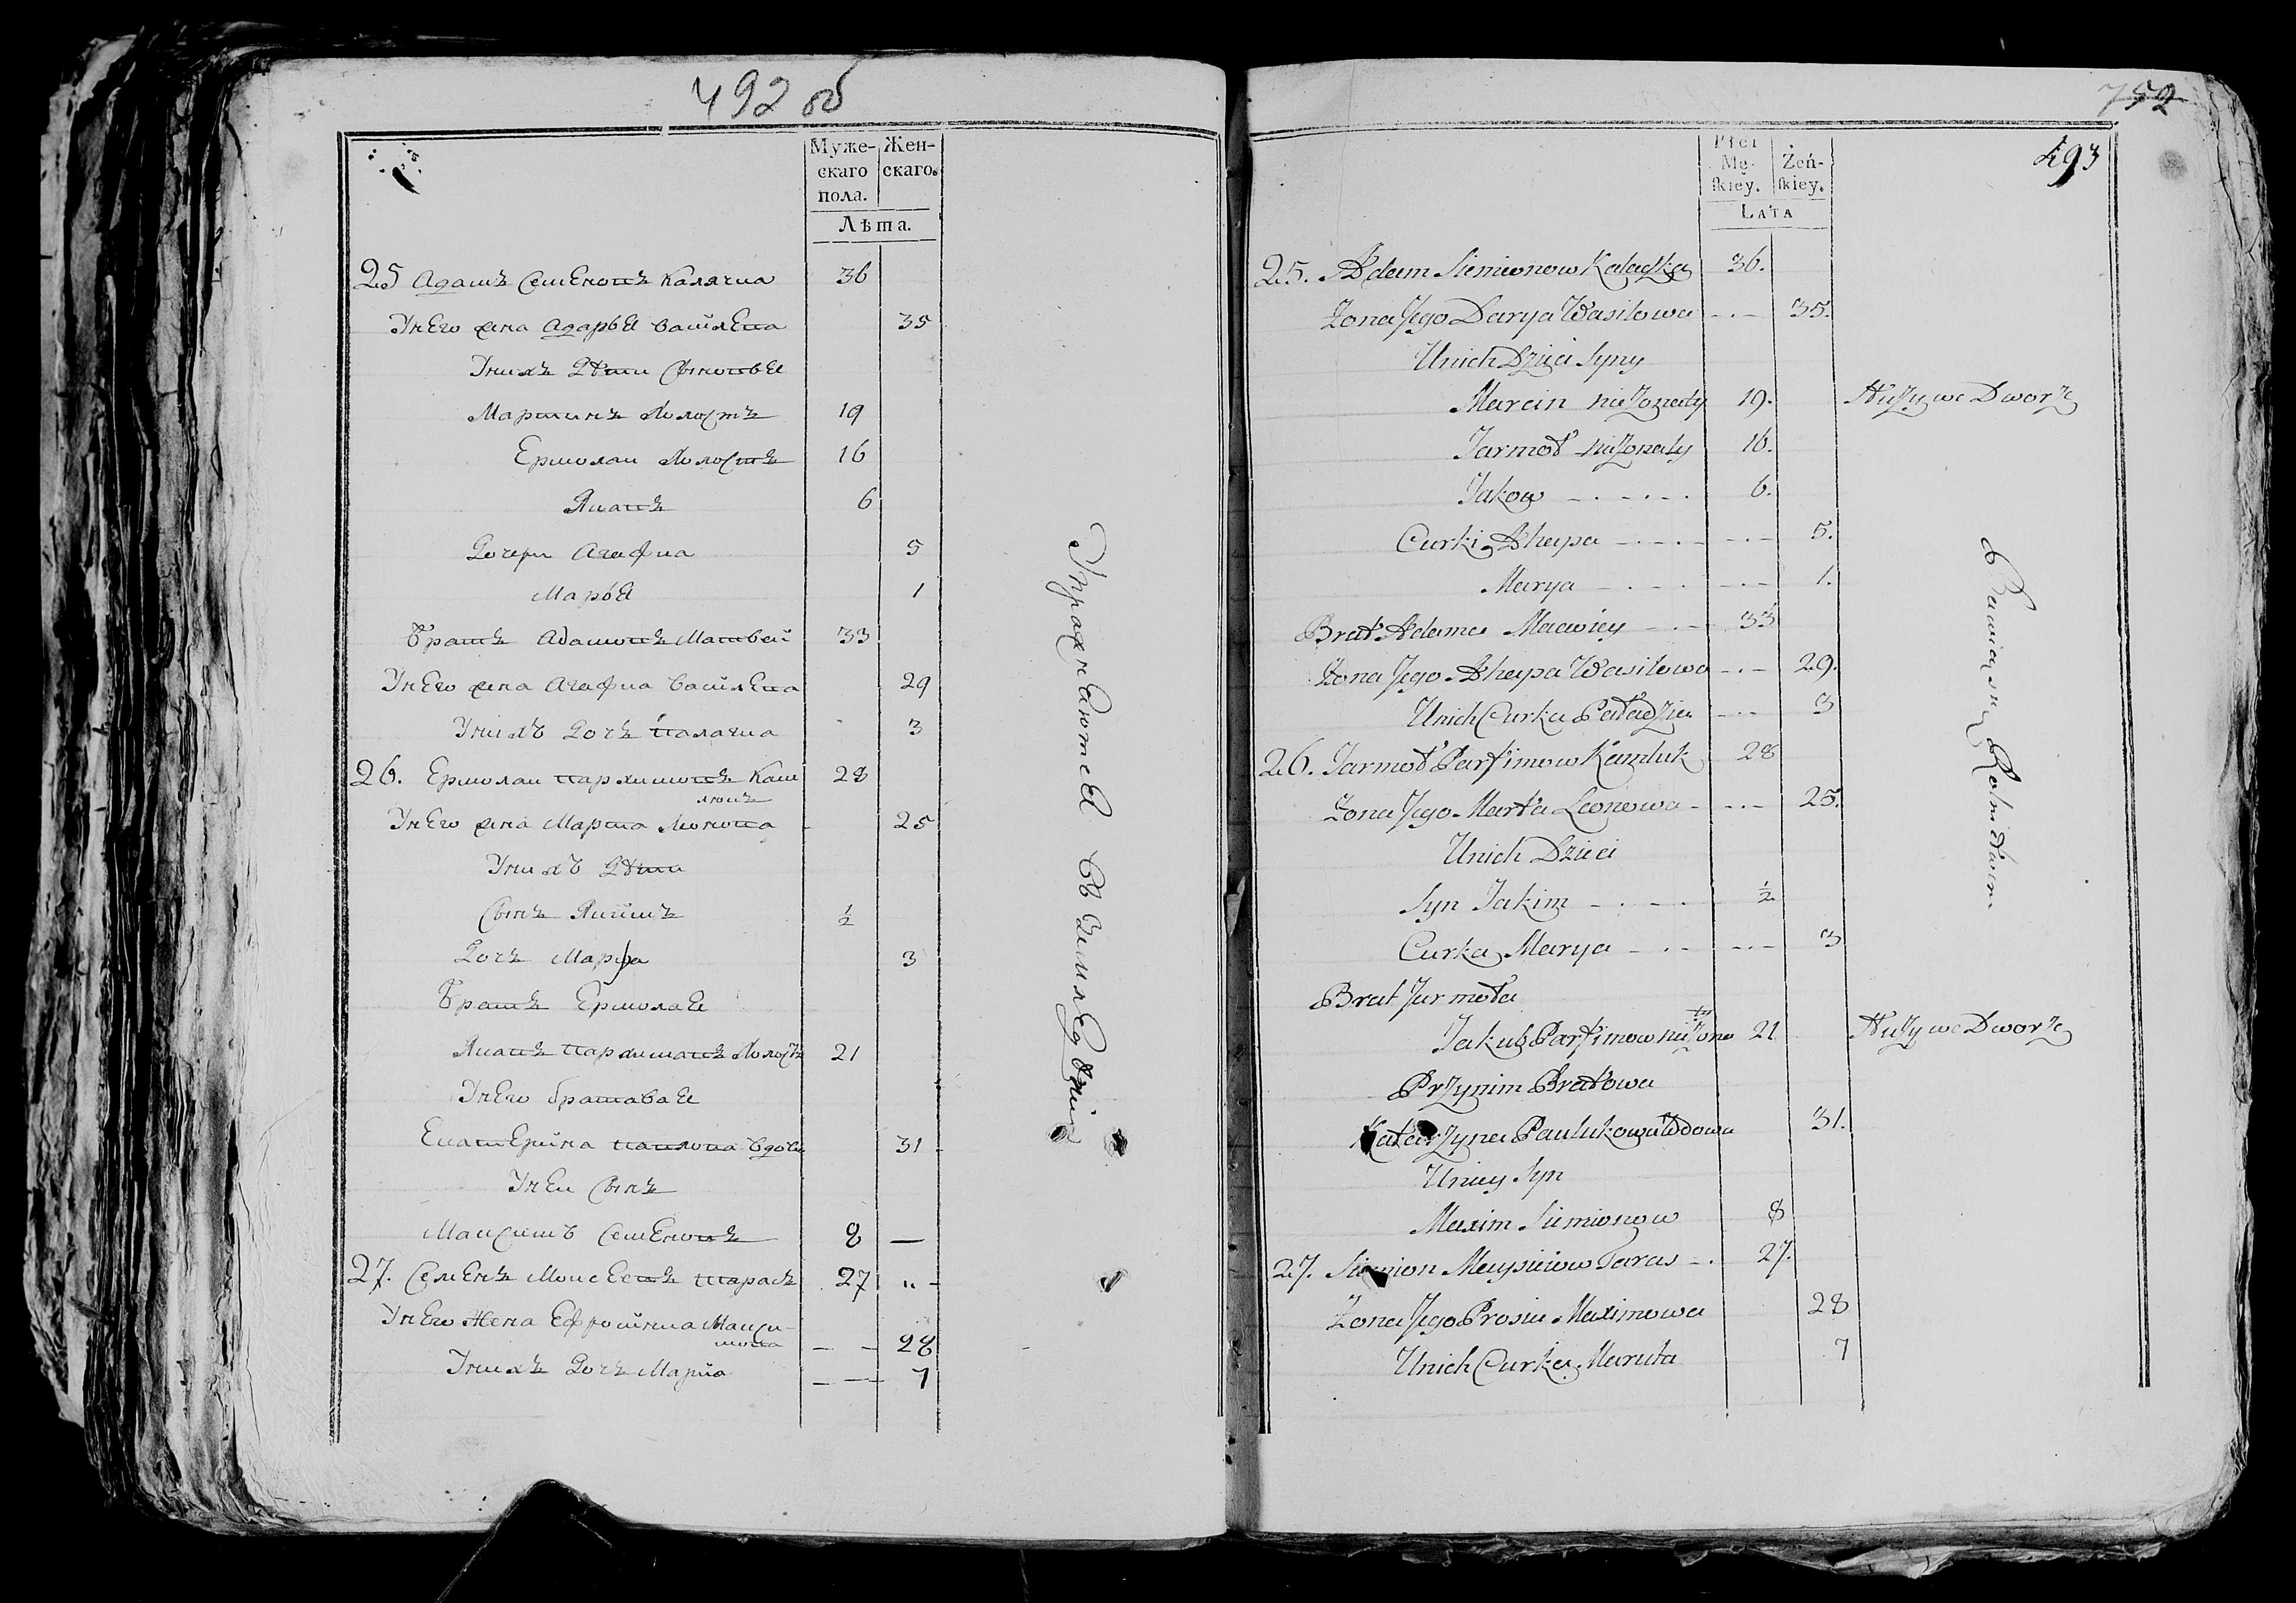 492 об
Муже-
скаго
пола.
Жен-
скаго.
Лѣта.
25 Адамъ Семеновъ Калячка 36
Унего жена Адарья василева 35
Унихъ Дѣти Сыновья
Мартинъ холостъ 19
Ермолаи холостъ 16
Яковъ 6
Дочери Агафиа 5
Марья 1
братъ Адамовъ Матвей 33
Унего жена Агафиа василева 29
Унихъ дочъ Палагиа 3
26. Ермолаи Пархимовъ Кам 28
люкъ
Унего жена Марта Люкова 25
Унихъ Дѣти
Сынъ Якимъ 1/2
Дочъ Марфа 3
братъ Ермолая
Яковъ Пархимовъ холостъ 21
Унего братовая
Екатерина Павлова вдова 31
Унеи Сынъ
Максимъ Семеновъ 8 —
27. Семенъ Моисеевъ Тарасъ 27 "
Унего жена Ефросиниа Макси-
мова — — 28
Унихъ Дочъ Мариа — — 7
Упражняются въ Земледѣліи
752
493
Płci
Mę-
skiey.
Żeń-
skiey.
LATA
25. Adam Siemionow Kaladka 36.
Zona Jego Darya Wasilowa - . - 35.
Unich Dzieci Syny
Marcin nieżonaty 19. Służy we Dworze
Jarmoł nieżonaty 16.
Jakow - . - . - . 6.
Curki Ahapa - . - . - 5.
Marya - . - . 1.
Brat Adama Maciey - . - 33
Zona Jego Ahapa Wasilowa - . - 29.
Unich Curka Paładzia - . - 3
26. Jarmoł Parfimow Kamluk 28
Zona Jego Marta Leonowa - . - 25.
Unich Dzieci
Syn Jakim - . - . 1/2
Curka Marya - . - 3
Brat Jarmoła
Jakub Parfimow nieżona 21 Służy we Dworze
ty
Przynim Bratowa
Katarzyna Paulukowa Wdowa 31.
Uniey Syn
Maxim Siemionow 8
27. Siemion Maysieiow Taras - . 27.
Zona Jego Prosia Maximowa 28
Unich Curka Maruta 7
Bawią się Rolnictwem